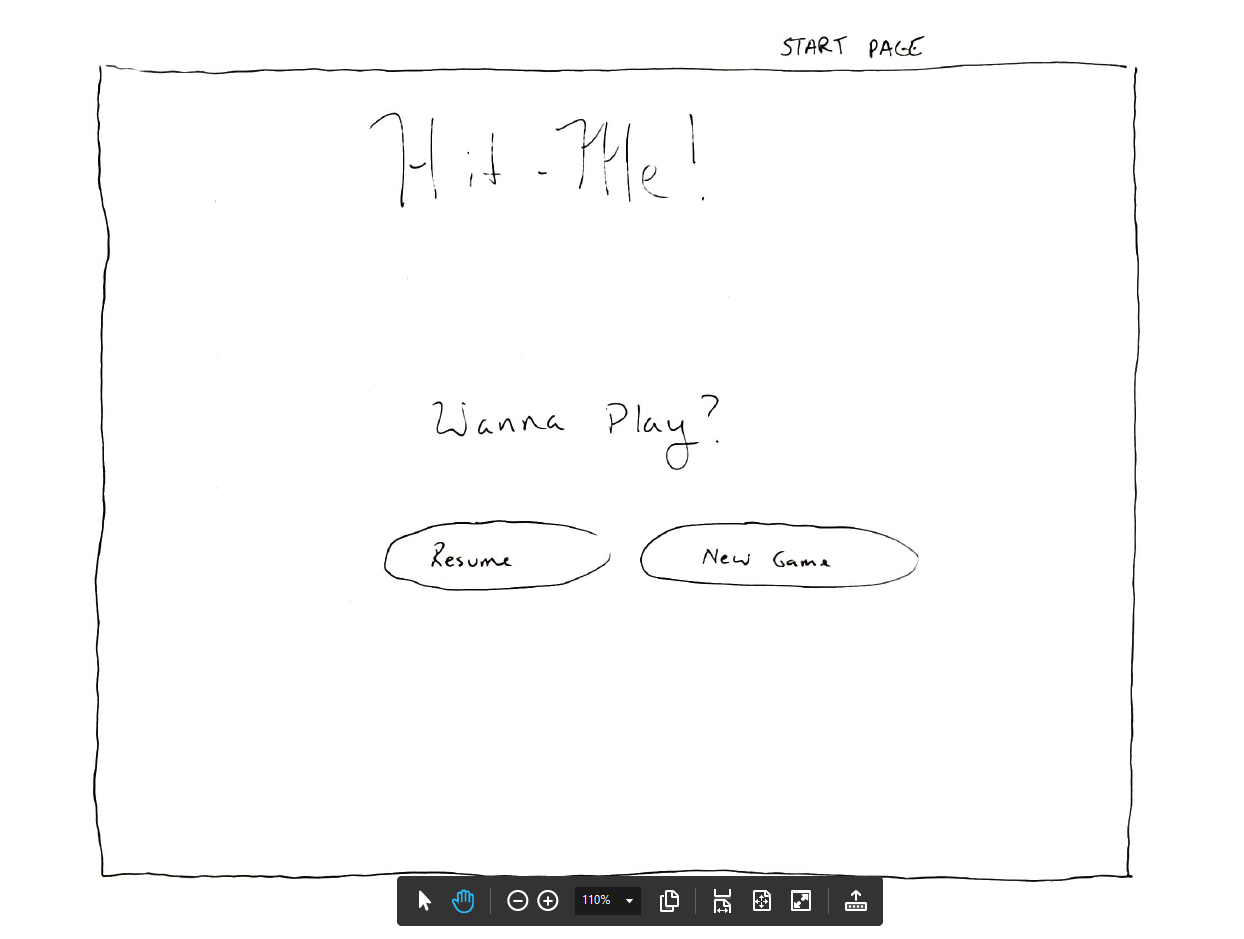 START PAGE
Hit-Me!
Wanna Play?
Resume
New Game
110%